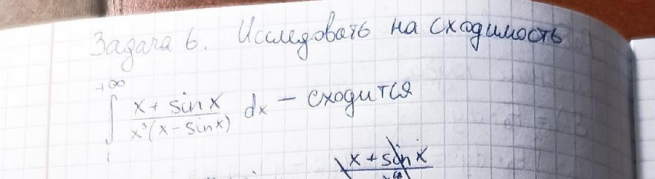 Задача 6. Исследовать на сходимость
+∞
∫ x + sin x / x³(x - sin x) dx - сходится
1
x + sin x